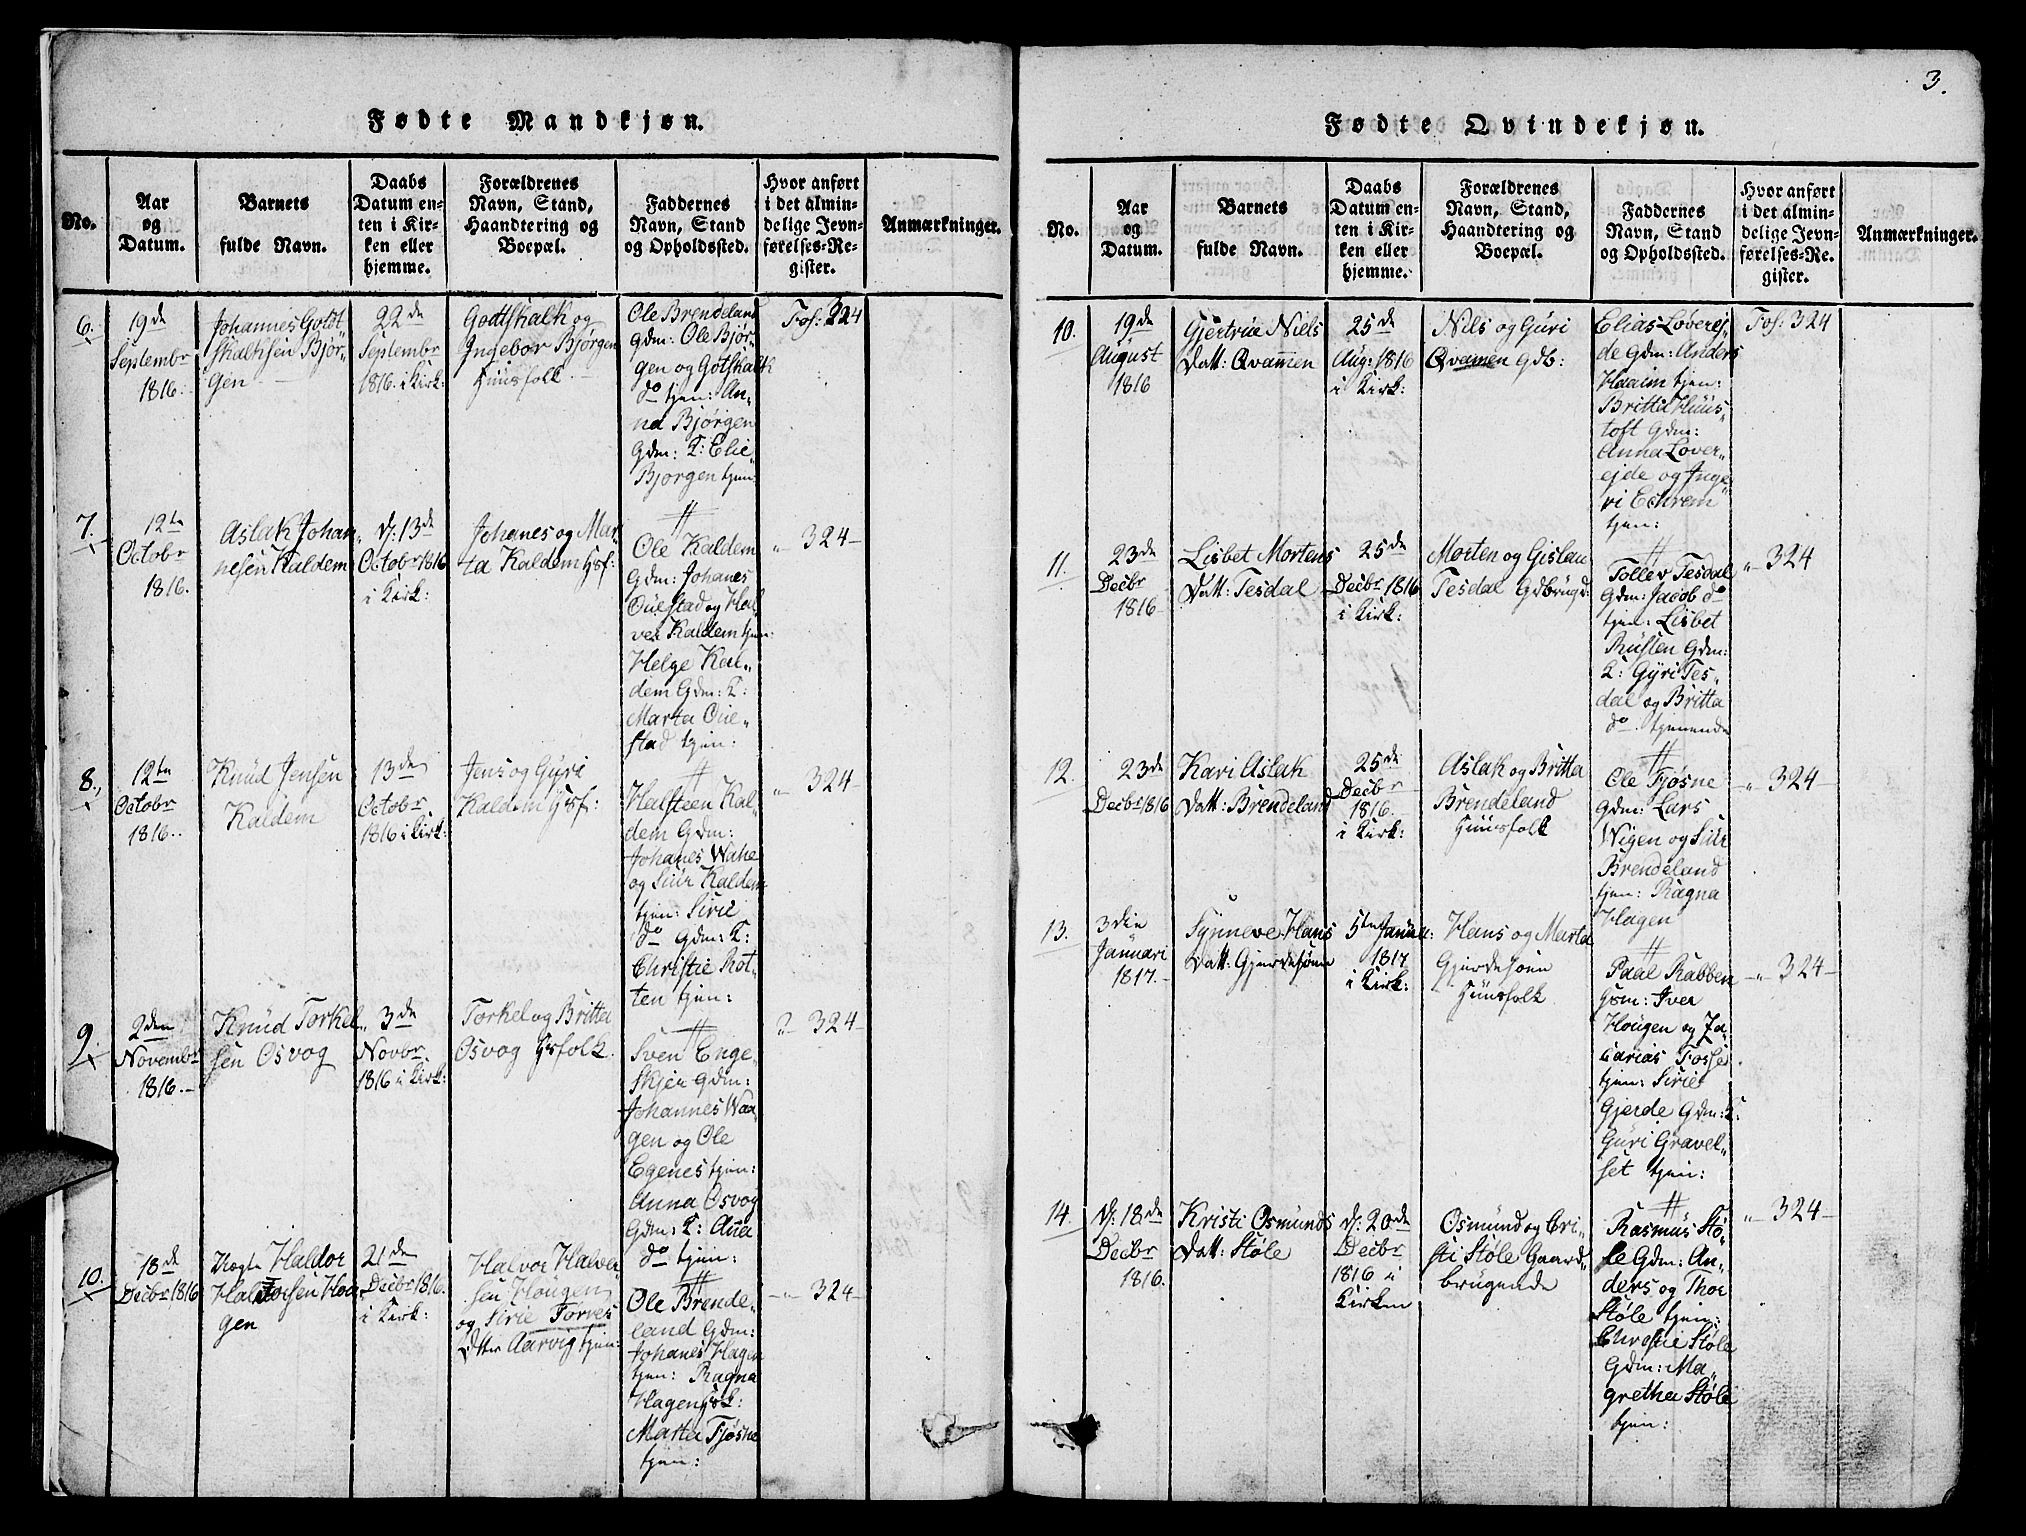 3.
Fødte Mandkjøn.
No.
Aar
og
Datum.
Barnets
fulde Navn.
Daabs
Datum en-
ten i Kir-
ken eller
hjemme.
Forældrenes
Navn, Stand,
Haandtering og
Boepæl.
Faddernes
Navn, Stand
og Opholdssted.
Hvor anført
i det almin-
delige Jevn-
førelses-Re-
gister.
Anmærkninger.
6.
19de
Septembr
1816.
Johannes Goldt
skalksen Bjør-
gen
22de
Septembr
1816. i Kirk:
Gottskalk og
Ingebor Bjørgen
Huusfolk
Ole Brendeland
Gdm: Ole Bjør-
gen og Gotskalk
do tjen: An-
na Bjørgen
Gdm: K: Elie
Bjorgen tjen:
Fol: 324
7.
12te
Octobr
1816.
Aslak Johan-
nesen Kaldem
d: 13de
Octobr 1816
i Kirk:
Johanes og Mar-
ta Kaldem Hsf:
Ole Kaldem
Gdm: Johanes
Ouestad og Hal
vor Kaldem tjen:
Helge Kal-
dem Gdm: K:
Marta Oue-
stad tjen:
" 324
8.
12te
Octobr
1816.
Knud Jensen
Kaldem
13de
Octobr
1816 i Kirk:
Jens og Gyri
Kaldem Hsf:
Halsteen Kal-
dem Gdm:
Johanes Wahe
og Siur Kaldem
tjen: Sirie
do Gdm: K:
Christie Rot-
ten tjen:
" 324
9.
2den
Novembr
1816.
Knud Torkel-
sen Osvog
3de
Novbr
1816 i Kirk:
Torkel og Britta
Osvog Hsfolk.
Sven Enge-
skjer Gdm:
Johannes Waa-
gen og Ole
Egenes tjen:
Anna Osvog
Gdm: K: Aasa
do tjen:
" 324
10.
18de
Decbr 1816
Haldor
Haldorsen Hou-
gen
21de
Decbr 1816.
i Kirk:
Halvor Halvor
sen Hougen
og Sirie Torves
Dtter Aarvig tjen:
Ole Brende-
land Gdm:
Johanes Hagen
tjen: Ragna
Hagen Hsk:
Marta Fjøsne
tjen:
" 324
Fødte Qvindekjøn.
No.
Aar
og
Datum.
Barnets
fulde Navn.
Daabs
Datum en-
ten i Kir-
ken eller
hjemme.
Forældrenes
Navn, Stand,
Haandtering og
Boepæl.
Faddernes
Navn, Stand
og Opholdssted.
Hvor anført
i det almin-
delige Jevn-
førelses-Re-
gister.
Anmærkninger.
10.
19de
August
1816
Gjertrue Niels
Datt: Qvamen
25de
Aug: 1816
i Kirk:
Nils og Guri
Qvamen Gdb:
Elias Løverej-
de Gdm: Anders
Haaim tjen:
Britta Huus-
toft Gdm:
Anna Løver-
ejde og Inge-
ri Echrem
tjen:
Fol: 324
11.
23de
Decbr
1816
Lisbet Mortens
Datt: Tesdal
25de
Decbr 1816
i Kirk:
Morten og Gislau
Tesdal Gdbrugd:
Tollev Tesdal
Gdm: Jacob do
tjen: Lisbet
Rusten Gdm:
K: Gyri Tes-
dal og Britta
do tjenende
" 324
12.
23de
Decbr 1816
Kari Aslak
Datt: Brendeland
25de
Decbr
1816.
i Kirk:
Aslak og Britta
Brendeland
Huusfolk
Ole Fjøsne
Gdm: Lars
Wigen og Siur
Brendeland
tjen: Ragna
Hagen
" 324
13.
3die
Januari
1817.
Synneve Hans
Datt: Gjerdesøen
5te Januar:
1817
i Kirk:
Hans og Marta
Gjerdesøen
Huusfolk
Paal Rabben
Hsm: Iver
Hougen og Za-
carias Fosse
tjen: Sirie
Gjerde Gdm: K:
Guri Gravel-
set tjen:
" 324
14.
d: 18de
Decbr
1816.
Kristi Osmunds
Datt: Støle
d: 20de
Decbr
1816 i
Kirken
Osmund og Cri-
sti Støle Gaard-
brugende
Rasmus Stø-
le Gdm: An-
ders og Thor
Støle tjen:
Christie Støle
Gdm: Ma-
gretha Støle
tjen:
" 324